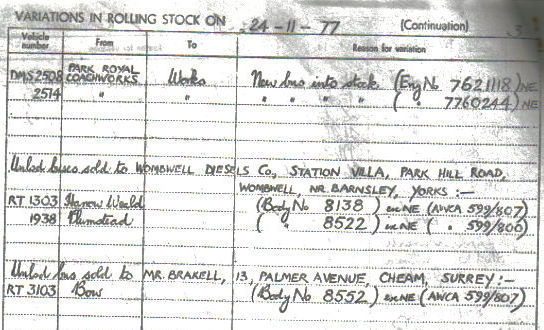 VARIATIONS IN ROLLING STOCK ON 24-11-77 (Continuation) 3
Vehicle number From To Reason for variation
DMS2508 PARK ROYAL COACHWORKS Works New bus into stock (Eng No 7621118) NE
2514 " " " " " " ( " 7760244) NE
Unlsd buses sold to WOMBWELL DIESELS Co., STATION VILLA, PARK HILL ROAD,
WOMBWELL, NR. BARNSLEY, YORKS :—
RT 1303 Harrow Weald (Body No 8138) ex NE (AWCA 599/807)
1938 Plumstead ( " 8522) ex NE ( " 599/806)
Unlsd bus sold to MR. BRAKELL, 13, PALMER AVENUE, CHEAM, SURREY :—
RT 3103 Bow (Body No 8552) ex NE (AWCA 599/807)